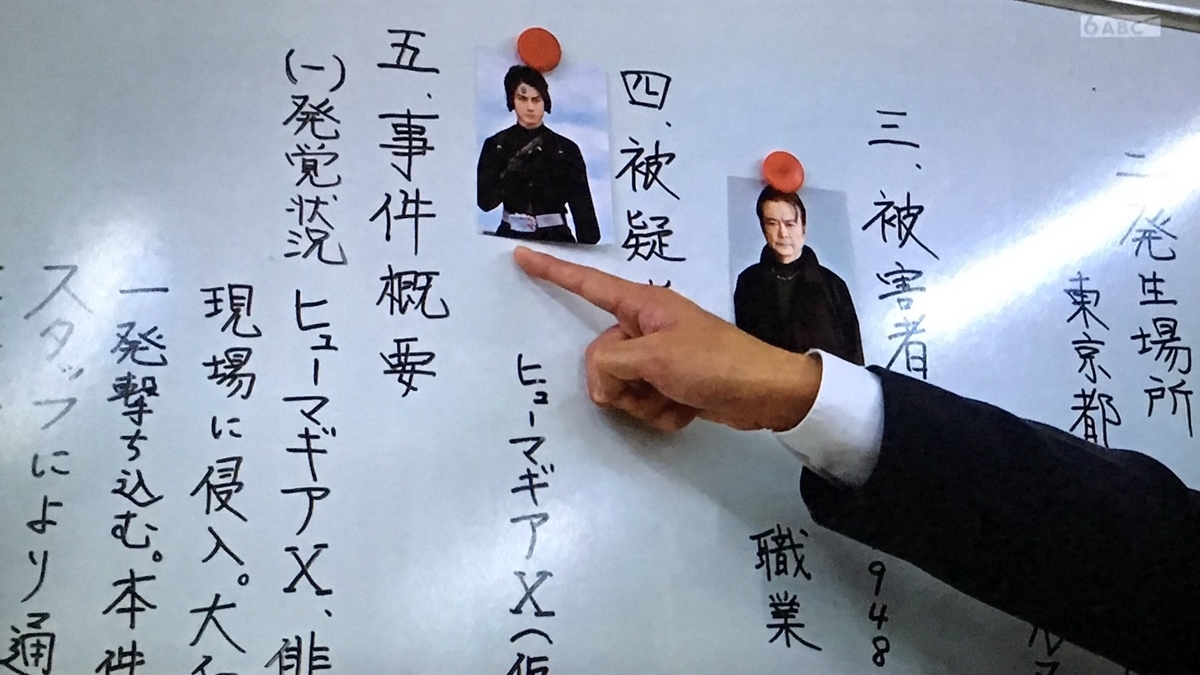 6 ABC
二、発生場所
東京都
三、被害者
948
職業
四、被疑
ヒューマギアX(仮
五、事件概要
(一)発覚状況 ヒューマギアX、俳
現場に侵入。大
一発撃ち込む。本件
スタッフにより通